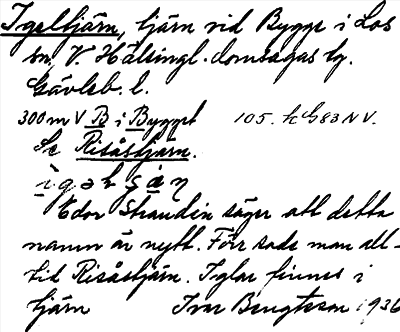 Igeltjärn, tjärn vid Bygget i Los
sn, V. Hälsingl. domsagas tg.
Gävleb. l.
300 m V B i Bygget 105. h G 83 N V.
Se Risåstjärn.
Edor Strandin säger att detta
namn är nytt. Förr sade man all-
tid Risåstjärn. Iglar finnes i
tjärn Ivar Bengtsson 1936